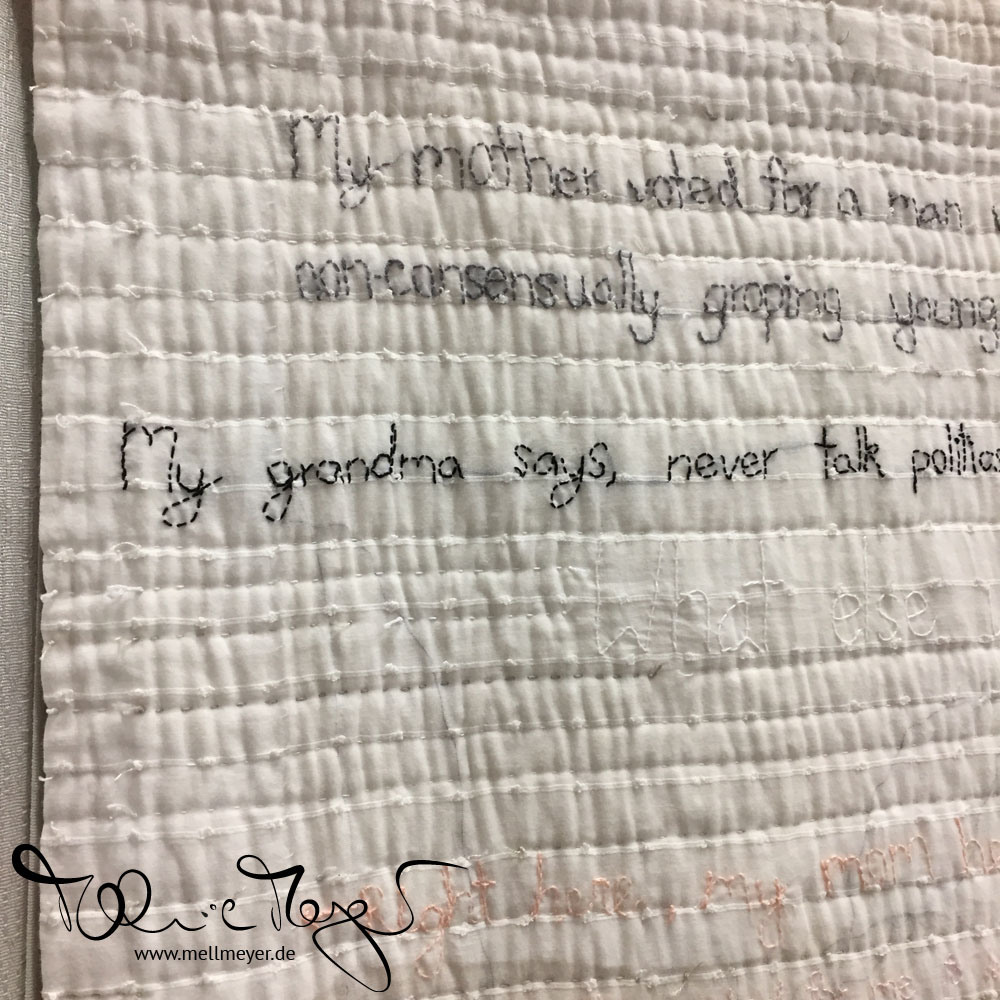 My mother voted for a man
non-consensually groping young
My grandma says, never talk
What else
right here, my mom
www.mellmeyer.de